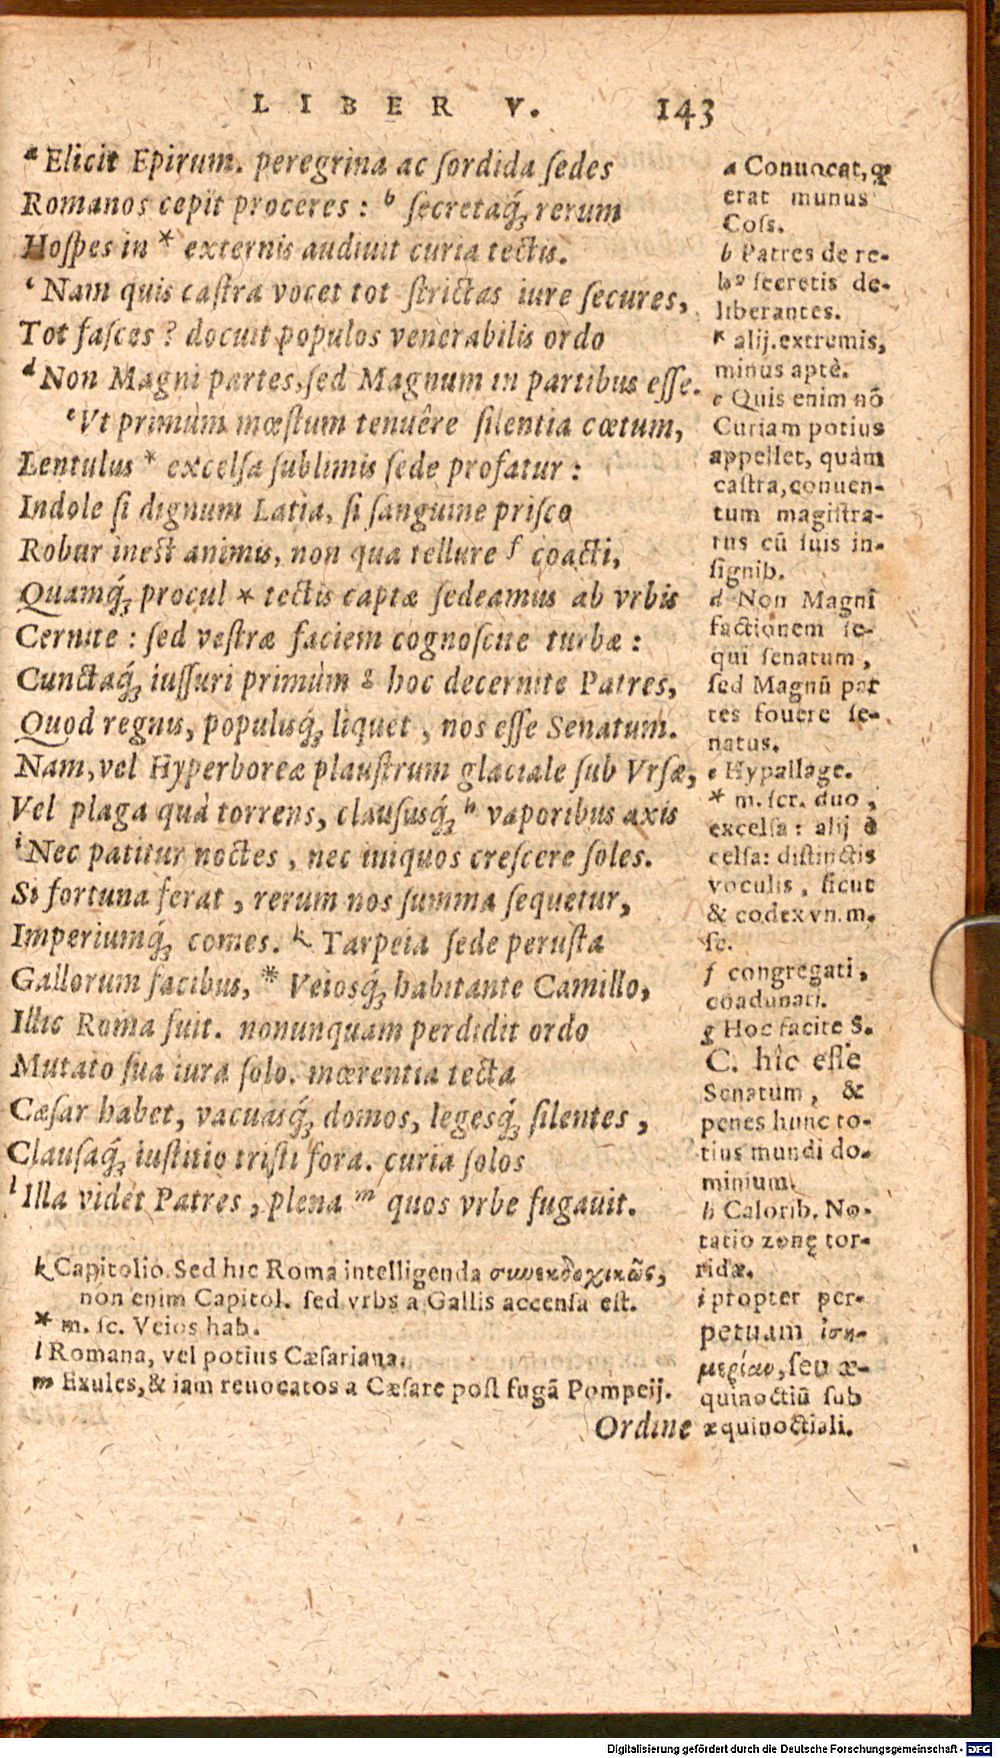 LIBER V. 143
a Elicit Epirum. peregrina ac ſordida ſedes
Romanos cepit proceres : b ſecretaq́ꝫ rerum
Hoſpes in * externis audiuit curia tectis.
c Nam quis caſtra vocet tot ſtrictas iure ſecures,
Tot faſces ? docuit populos venerabilis ordo
d Non Magni partes, ſed Magnum in partibus eſſe.
e Vt primùm mœſtum tenuêre ſilentia cœtum,
Lentulus * excelſa ſublimis ſede profatur :
Indole ſi dignum Latia, ſi ſanguine priſco
Robur ineſt animis, non qua tellure f coacti,
Quamq́ꝫ procul * tectis captæ ſedeamus ab vrbis
Cernite : ſed veſtræ faciem cognoſcite turbæ :
Cunctaq́ꝫ iuſſuri primùm g hoc decernite Patres,
Quod regnis, populisq́ꝫ liquet , nos eſſe Senatum.
Nam, vel Hyperboreæ plauſtrum glaciale ſub Vrſæ,
Vel plaga quà torrens, clauſusq́ꝫ h vaporibus axis
i Nec patitur noctes , nec iniquos creſcere ſoles.
Si fortuna ferat , rerum nos ſumma ſequetur,
Imperiumq́ꝫ comes. k Tarpeia ſede peruſta
Gallorum facibus, * Veiosq́ꝫ habitante Camillo,
Illic Roma fuit. nonunquam perdidit ordo
Mutato ſua iura ſolo. mœrentia tecta
Cæſar habet, vacuasq́ꝫ domos, legesq́ꝫ ſilentes ,
Clauſaq́ꝫ iuſtitio triſti fora. curia ſolos
l Illa videt Patres , plena m quos vrbe fugauit.
k Capitolio. Sed hic Roma intelligenda συνεκδοχικῶς,
non enim Capitol. ſed vrbs a Gallis accenſa eſt.
* m. ſc. Veios hab.
l Romana, vel potius Cæſariana.
m Exules, & iam reuocatos a Cæſare poſt fugā Pompeij.
Ordine
a Conuocat, qꝫ
erat munus
Coſs.
b Patres de re-
bꝰ ſecretis de-
liberantes.
* alij. extremis,
minus aptè.
c Quis enim nō
Curiam potius
appellet, quàm
caſtra, conuen-
tum magiſtra-
tus cū ſuis in-
ſignib.
d Non Magni
factionem ſe-
qui ſenatum ,
ſed Magnū par
tes fouere ſe-
natus.
e Hypallage.
* m. ſcr. duo ,
excelſa : alij è
celſa: diſtinctis
voculis , ſicut
& codex vn. m.
ſc.
f congregati ,
coadunati.
g Hoc facite S.
C. hic eſſe
Senatum , &
penes hunc to-
tius mundi do-
minium.
h Calorib. No-
tatio zonę tor-
ridæ.
i propter per-
petuam ἰση-
μερίαν, ſeu æ-
quinoctiū ſub
æquinoctiali.
Digitalisierung gefördert durch die Deutsche Forschungsgemeinschaft - DFG